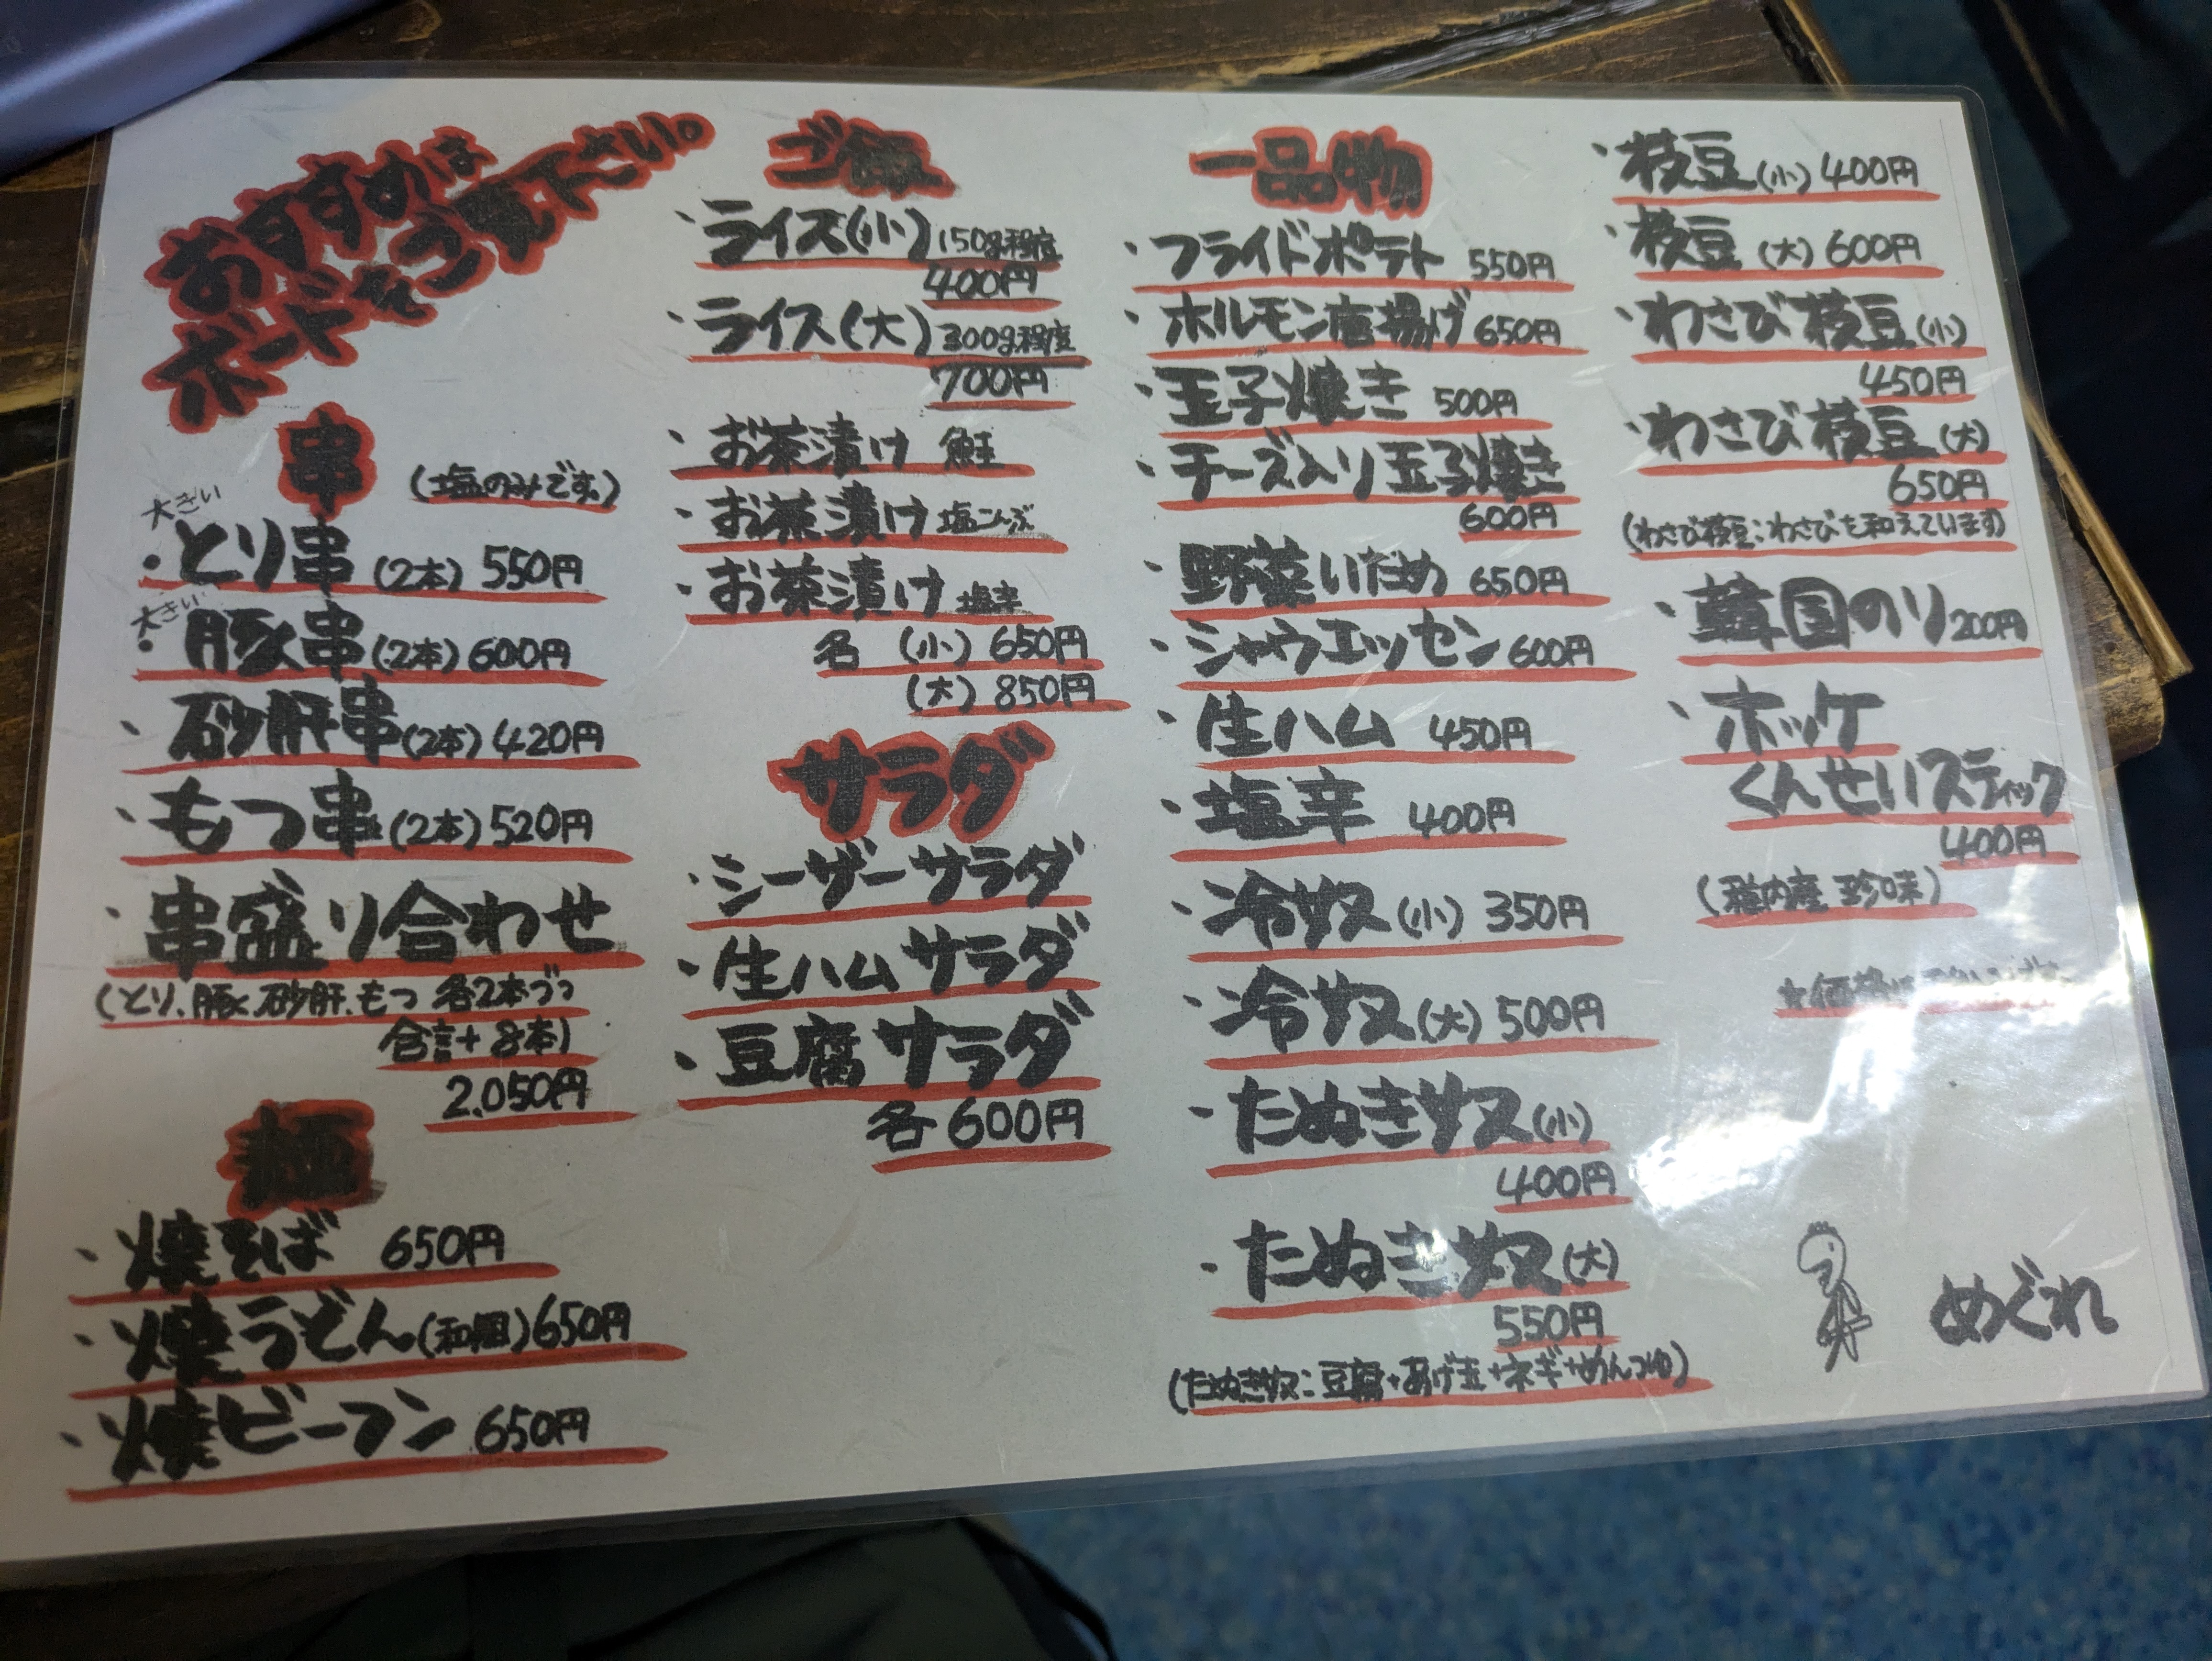 おすすめは
ボードをご覧下さい。
串
(塩のみです。)
大きい
・とり串(2本)550円
大きい
・豚串(2本)600円
・砂肝串(2本)420円
・もつ串(2本)520円
・串盛り合わせ
(とり、豚、砂肝、もつ 各2本づつ
合計8本)
2,050円
麺
・焼そば 650円
・焼うどん(和風)650円
・焼ビーフン 650円
ご飯
・ライス(小)150g程度
400円
・ライス(大)300g程度
700円
・お茶漬け 鮭
・お茶漬け 塩こんぶ
・お茶漬け 塩辛
各 (小) 650円
(大) 850円
サラダ
・シーザーサラダ
・生ハムサラダ
・豆腐サラダ
各600円
一品物
・フライドポテト 550円
・ホルモン唐揚げ 650円
・玉子焼き 500円
・チーズ入り玉子焼き
600円
・野菜いため 650円
・シャウエッセン 600円
・生ハム 450円
・塩辛 400円
・冷奴(小) 350円
・冷奴(大) 500円
・たぬき奴(小)
400円
・たぬき奴(大)
550円
(たぬき奴:豆腐+あげ玉+ネギ+めんつゆ)
・枝豆(小) 400円
・枝豆(大) 600円
・わさび枝豆(小)
450円
・わさび枝豆(大)
650円
(わさび枝豆:わさびを和えています)
・韓国のり 200円
・ホッケ
くんせいスティック
400円
(稚内産 珍味)
☆価格は
めぐれ